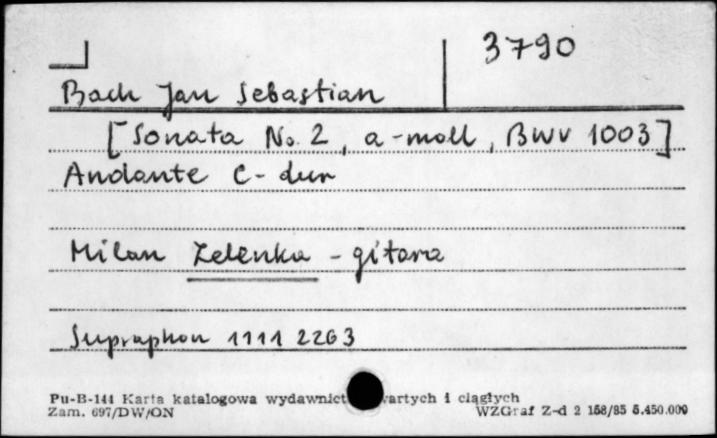 3790
Bach Jan Sebastian
[Sonata No. 2, a-moll, BWV 1003]
Andante C-dur
Milan Zelenka - gitara
Supraphon 1111 2263
Pu-B-144 Karta katalogowa wydawnict wartych i ciągłych
Zam. 697/DW/ON WZGraf Z-d 2 158/85 5.450.000